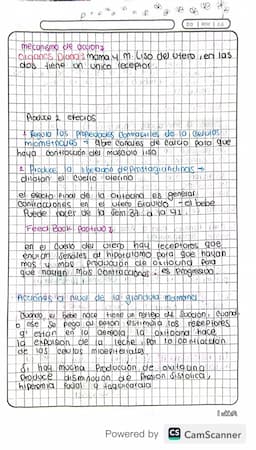 mecanismo de accion:
Organos Diana: mama y m. Liso del utero, en las
dos tiene un unico receptor.
Produce 2 efectos
1. Regula las propiedades contractiles de la celulas
miometriales → abre canales de calcio para que
haya contraccion del musculo liso
2. Produce la liberacion de prostaglandinas →
dilatan el cuello uterino
el efecto final de la oxitocina es generar
contracciones en el utero Gravido → el bebe
Puede nacer de la sem 37 a la 41.
Feed Back Positivo:
en el cuello del utero hay receptores que
envian señales al hipotalamo para que hayan
mas y mas produccion de oxitocina para
que hayan mas contracciones. es progresivo
Acciones a nivel de la glandula mamaria
Cuando el bebe nace tiene un reflejo de succion, cuando
ese se pega al peton estimula los receptores
q' estan en la aereola la oxitocina hace
la expulsion de la leche. Por la contraccion
de las celulas mioepiteliales.
Si hay mucha Produccion de oxitocina
Produce disminucion de Presion sistolica,
hiperemia facial y taquicardia
Powered by CS CamScanner